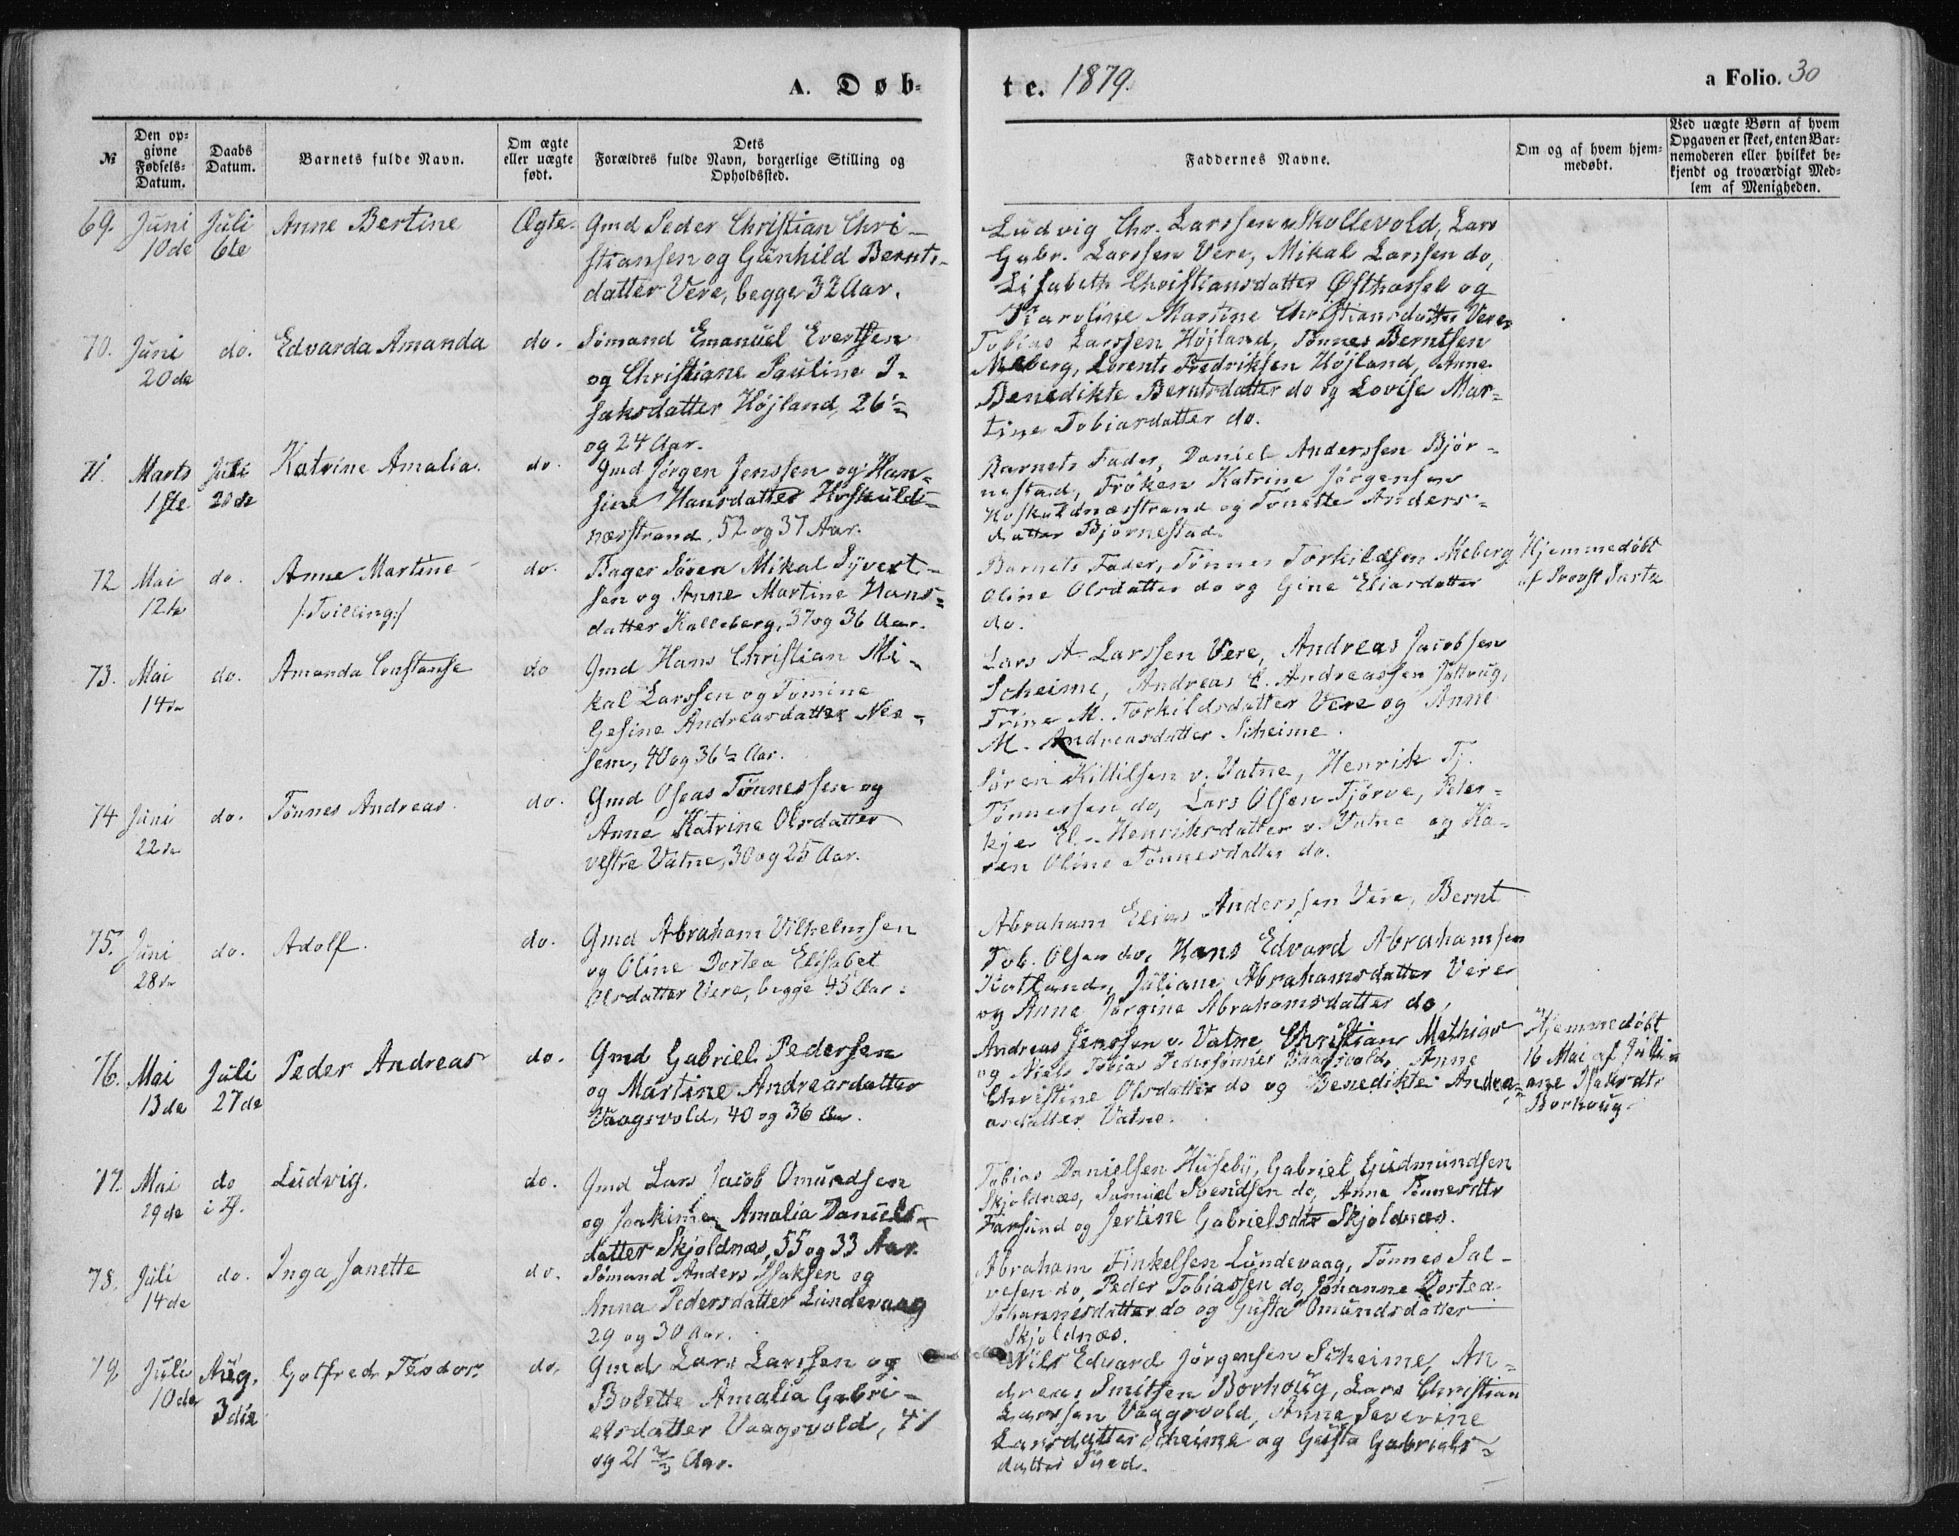 A. Døb-
te. 1879.
a Folio. 30
№
Den op-
givne
Fødsels-
Datum.
Daabs
Datum.
Barnets fulde Navn.
Om ægte
eller uægte
født.
Dets
Forældres fulde Navn, borgerlige Stilling og
Opholdssted.
Faddernes Navne.
Om og af hvem hjem-
medøbt.
Ved uægte Børn af hvem
Opgaven er skeet, enten Bar-
nemoderen eller hvilket be-
kjendt og troværdigt Med-
lem af Menigheden.
69. Juni Juli Anne Bertine Ægte. Gmd Peder Christian Chri-
10de 6te stiansen og Gunhild Bernts-
datter Vere, begge 32 Aar.
Ludvig Chr. Larssen Skollevold, Lars
Gabr. Larssen Vere, Mikal Larssen do,
Lisabeth Christiansdatter Østhassel og
Karoline Martine Christiansdatter Vere
70. Juni do. Edvarda Amanda do. Sømand Emanuel Evertsen
20de og Christiane Pauline I-
saksdatter Højland, 26½
og 24 Aar.
Tobias Larssen Højland, Tønnes Berntsen
Meberg, Lorents Fredriksen Højland, Anne
Benedikte Berntsdatter do og Lovise Mar-
tine Tobiasdatter do.
71. Marts Juli Katrine Amalia. do. Gmd Jørgen Jenssen og Han-
1ste 20de sine Hansdatter Hoskulds-
næsstrand, 52 og 37 Aar.
Barnets Fader, Daniel Anderssen Bjør-
nestad, Frøken Katrine Jørgensen
Hoskuldnæsstrand og Tonette Anders-
datter Bjørnestad.
72 Mai do. Anne Martine do. Bager Søren Mikal Syvert-
12te /:Tvilling:/ sen og Anne Martine Hans-
datter Kalleberg, 37 og 36 Aar.
Barnets Fader, Tønnes Torkildsen Meberg
Oline Olsdatter do og Gine Eliasdatter
do.
Hjemmedøbt
af Provst
73. Mai do. Amanda Constanse do Gmd Hans Christian Mi-
14de kal Larssen og Tomine
Gesine Andreasdatter Nes-
sem, 40 og 36½ Aar.
Lars A. Larssen Vere, Andreas Jacobsen
Scheime, Andreas C. Andreassen
Trine M. Torkildsdatter Vere og Anne
M. Andreasdatter Scheime.
74 Juni do. Tønnes Andreas. do. Gmd Oseas Tønnessen og
22de Anne Katrine Olsdatter
vestre Vatne, 30 og 25 Aar.
Søren Kittilsen v. Vatne, Henrik Tj.
Tønnessen do, Lars Olsen Tjørve, Peter-
kje El. Henriksdatter v. Vatne og Ka-
ren Oline Tønnesdatter do.
75. Juni do. Adolf. do. Gmd Abraham Vilhelmsen
28de og Oline Dortea Elisabet
Olsdatter Vere, begge 43 Aar.
Abraham Elias Anderssen Vere, Bernt
Tob. Olsen do, Hans Edvard Abrahamsen
Katland, Juliane Abrahamsdatter Vere
og Anne Jørgine Abrahamsdatter do.
76. Mai Juli Peder Andreas do. Gmd Gabriel Pedersen
13de 27de og Martine Andreasdatter
Vaagsvold, 40 og 36 Aar.
Andreas Jenssen v. Vatne, Christian Mathias
og Niels Tobias Pedersønner Vaagsvold, Anne
Christine Olsdatter do og Benedikte Andre-
asdatter Vatne.
Hjemmedøbt
16 Mai af Juli-
ane Isaksdtr
Borhoug.
77. Mai do Ludvig. do. Gmd Lars Jacob Omundsen
29de i Fj. og Joakime Amalia Daniels-
datter Skjoldnæs, 55 og 33 Aar.
Tobias Danielsen Huseby, Gabriel Gudmundsen
Skjoldnæs, Samuel Svendsen do, Anne Tønnesdtr
Farsund og Jertine Gabrielsdtr Skjoldnæs.
78. Juli do. Inga Janette do. Sømand Anders Isaksen og
14de Anna Pedersdatter Lundevaag
29 og 30 Aar.
Abraham Finkelsen Lundevaag, Tønnes Sal-
vesen do, Peder Tobiassen do, Johanne Dortea
Johannesdatter do og Gusta Omundsdatter
Skjoldnæs.
79 Juli Aug. Gotfred Teodor. do. Gmd Lars Larssen og
10de 3die Bolette Amalia Gabri-
elsdatter Vaagsvold, 41
og 21 ⅔ Aar.
Nils Edvard Jørgensen Scheime, An-
dreas Smitsen Borhoug, Lars Christian
Larssen Vaagsvold, Anne Severine
Larsdatter Scheime og Gusta Gabriels-
datter